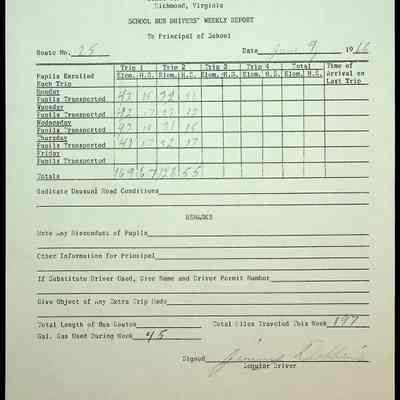 Richmond, Virginia
SCHOOL BUS DRIVERS' WEEKLY REPORT
To Principal of School
Route No. 25 Date June 9, 1966
Trip 1 Trip 2 Trip 3 Trip 4 Total Time of
Pupils Enrolled Elem. H.S. Elem. H.S. Elem. H.S. Elem. H.S. Elem. H.S. Arrival on
Each Trip Last Trip
Monday
Pupils Transported 43
Tuesday
Pupils Transported 42
Wednesday
Pupils Transported
Thursday
Pupils Transported 17 17
Friday
Pupils Transported
Totals 169 67 128 55
Indicate Unusual Road Conditions
REMARKS
Note Any Misconduct of Pupils
Other Information for Principal
If Substitute Driver Used, Give Name and Driver Permit Number
Give Object of Any Extra Trip Made
Total Length of Bus Routes Total Miles Traveled This Week 197
Gal. Gas Used During Week 45
Signed Jimmy
Regular Driver